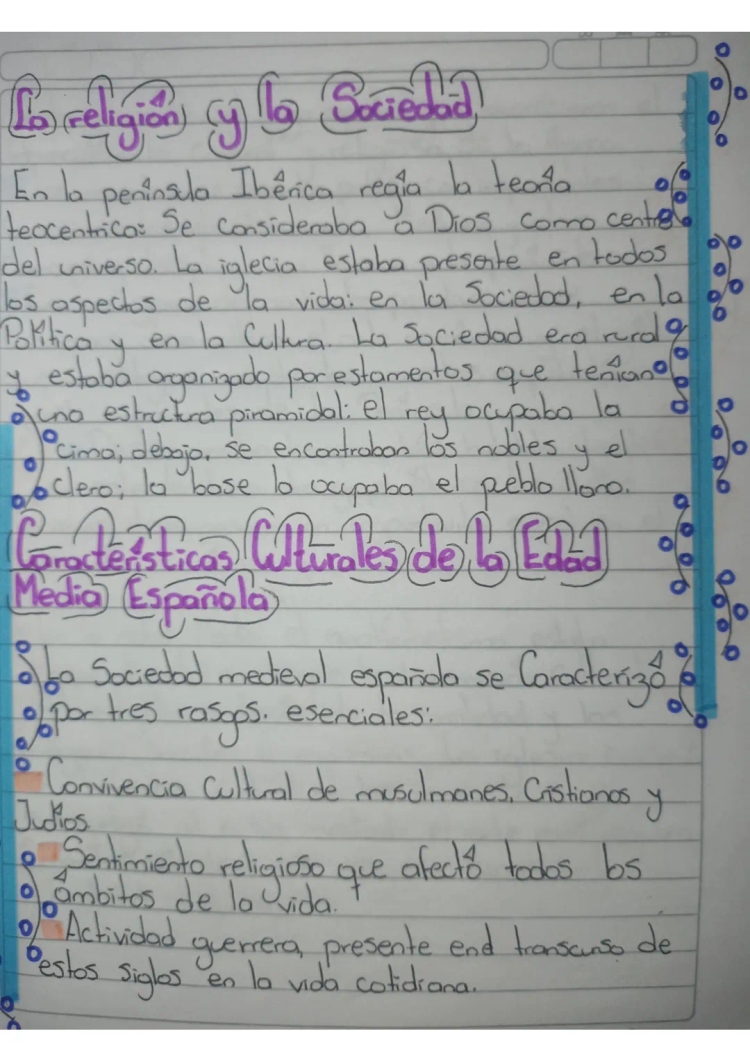 La religión y la Sociedad
En la península Ibérica regía la teoría
teocentrica: Se consideraba a Dios como centro
del universo. La iglecia estaba presente en todos
los aspectos de la vida: en la Sociedad, en la
Política y en la Cultura. La Sociedad era rural
y estaba organizado por estamentos que tenían
una estructura piramidal: el rey ocupaba la
cima; debajo, se encontraban los nobles y el
clero; la base la ocupaba el pueblo llano.
Características Culturales de la Edad
Media Española
La Sociedad medieval española se Caracterizó
por tres rasgos. esenciales:
Convivencia Cultural de musulmanes, Cristianos y
Judíos
Sentimiento religioso que afectó todos los
ámbitos de la vida.
Actividad guerrera, presente end transcurso de
estos siglos en la vida cotidiana.